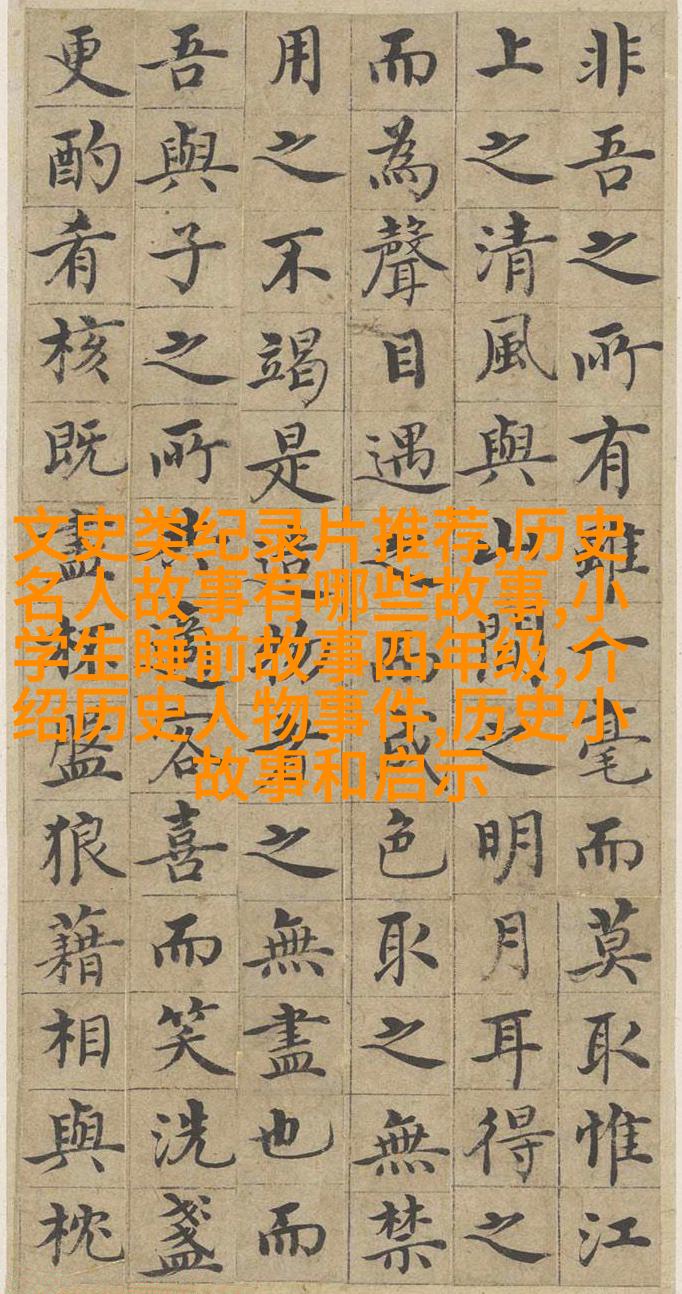 非吾之所有雖一毫而莫取惟江
上之清風與山間之明月耳得之
而為聲目遇之而成色取之無禁
用之不竭是造物者之無盡也而
吾與子之所共適客喜而笑洗盞
更酌肴核既盡杯盤狼藉相與枕
文史类纪录片推荐,历史
名人故事有哪些故事,小
学生睡前故事四年级,介
绍历史人物事件,历史小
故事和启示